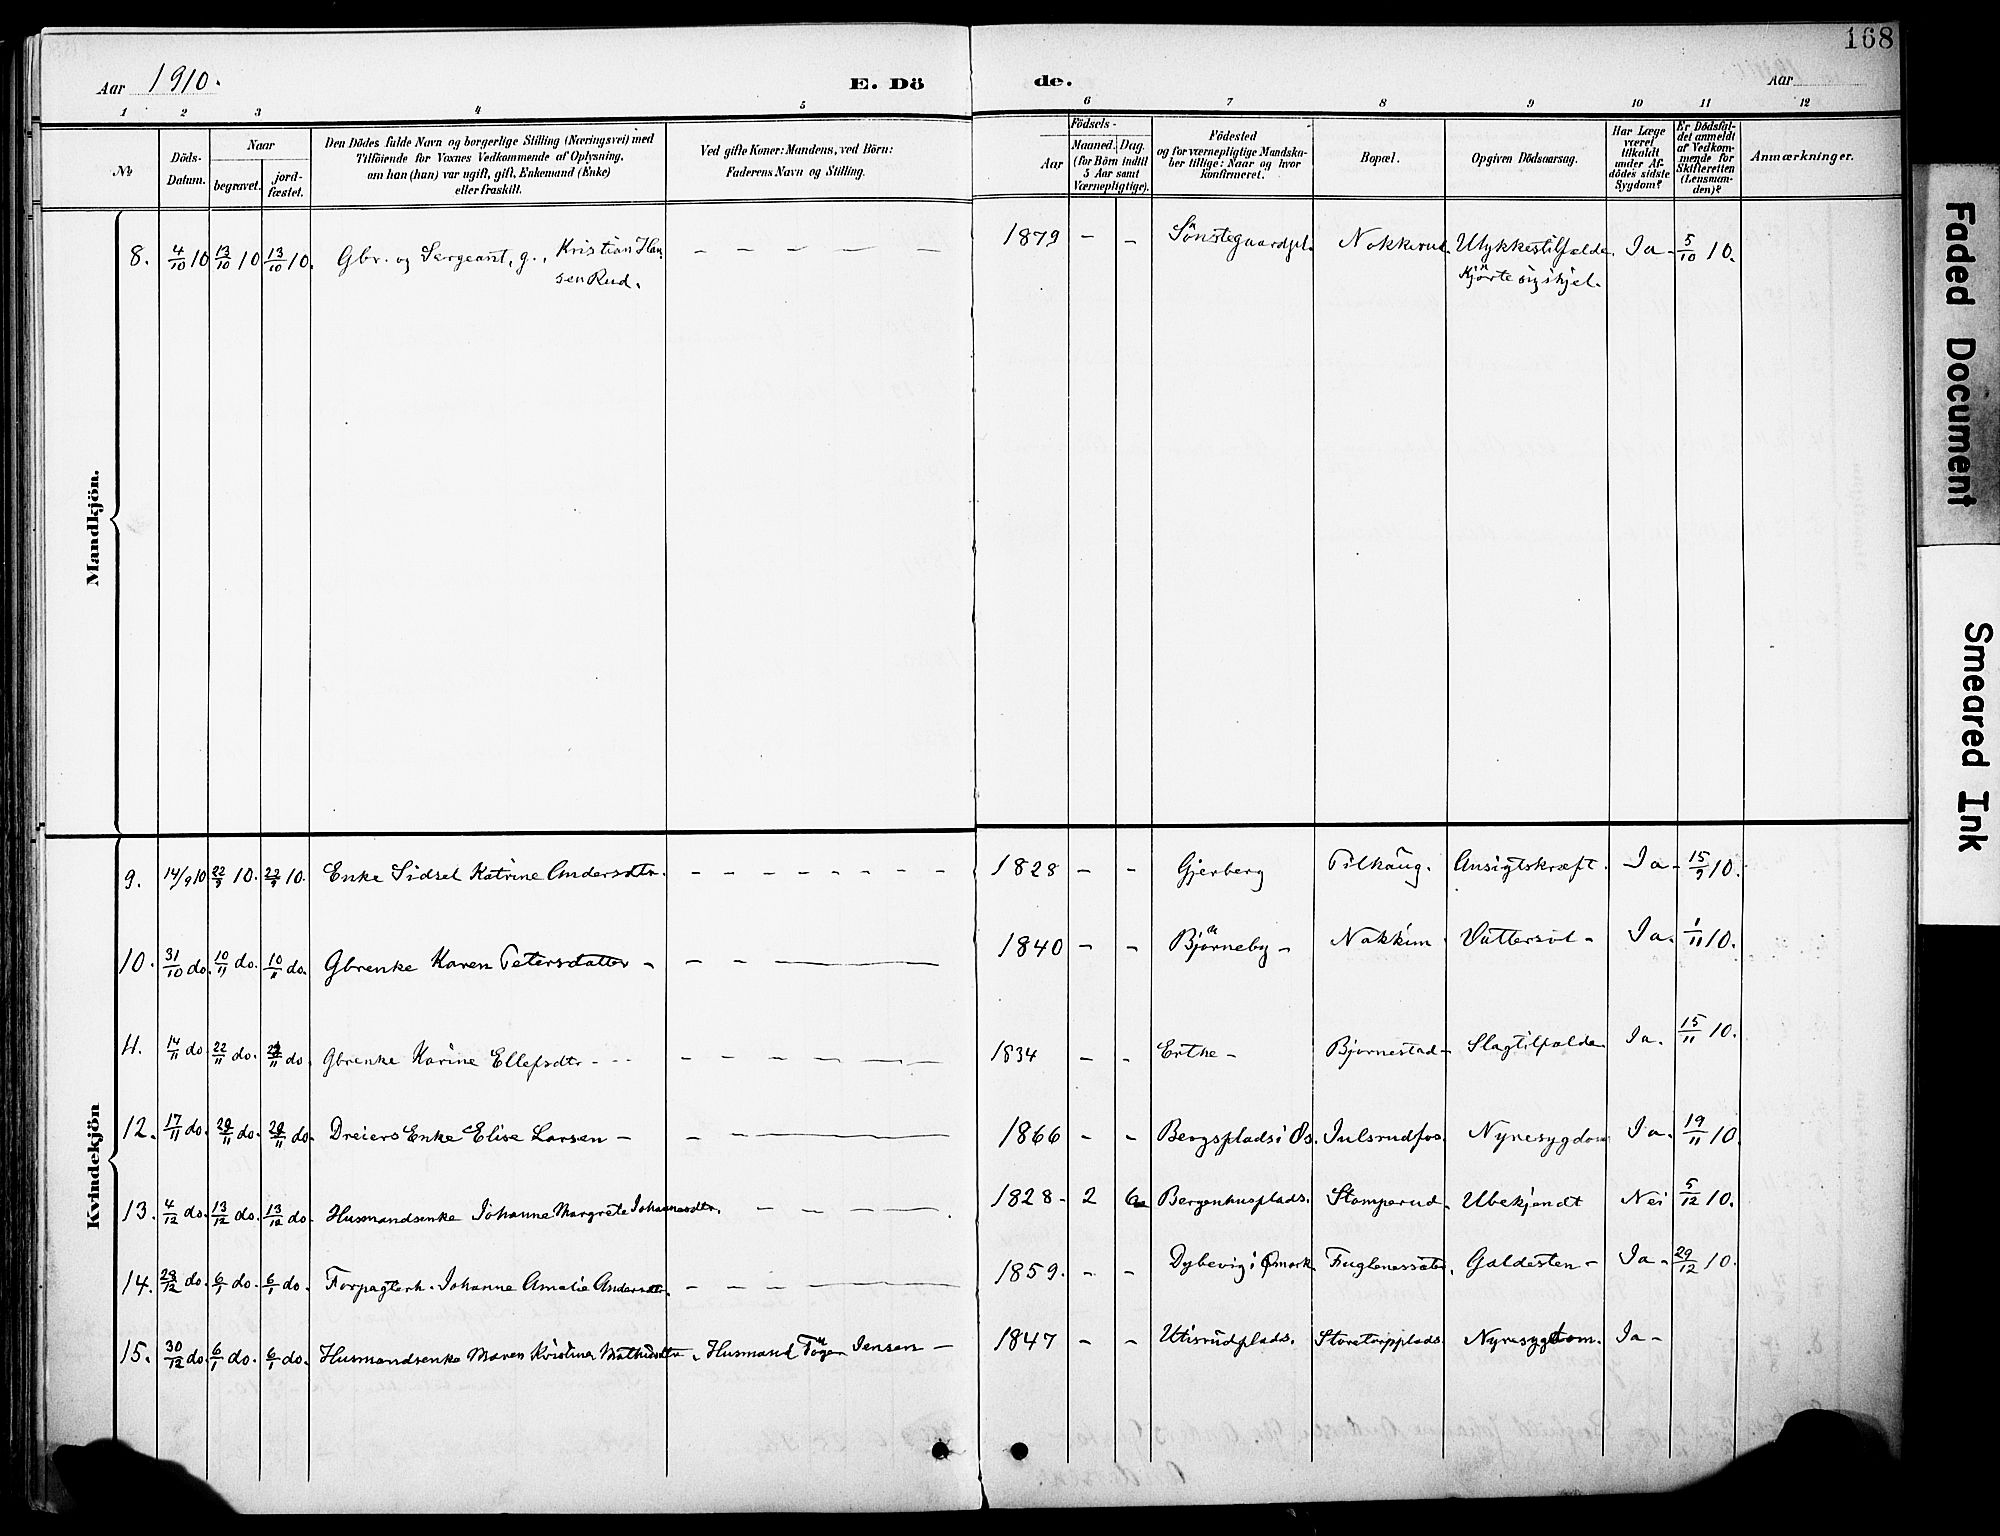 168
Aar 1910.
E. Döde.
Aar
1 2 3 4 5 6 7 8 9 10 11 12
No
Döds-Datum.
Naar
begravet.
jordfæstet.
Den Dödes fulde Navn og borgerlige Stilling (Næringsvei) med
Tilföiende for Voxnes Vedkommende af Oplysning,
om han (hun) var ugift, gift, Enkemand (Enke)
eller fraskilt.
Ved gifte Koner: Mandens, ved Börn:
Faderens Navn og Stilling.
Födsels-
Aar
Maaned. Dag.
(for Börn indtil
5 Aar samt
Værnepligtige).
Födested
og for værnepligtige Mandska-
ber tillige: Naar og hvor
konfirmeret.
Bopæl.
Opgiven Dödsaarsag.
Har Læge
været
tilkaldt
under Af-
dødes sidste
Sygdom?
Er Dödsfal-
det anmeldt
af Vedkom-
mende for
Skifteretten
(Lensman-
den)?
Anmærkninger.
Mandkjön.
8. 4/10 10 13/10 10 13/10 10. Gbr. og Sergeant, g., Kristian Han- - - - - - 1879 - - Sönstegaardpl. Nokkerud. Ulykkestilfælde. Ja - 5/10 10.
sen Rud. Kjörte sig ihjel.
Kvindekjön
9. 14/9 10 22/9 10. 22/9 10. Enke Sidsel Katrine Andersdtr. - - - - - - - - 1828 - - Gjerberg Tilkaug. Ansigtskræft. Ja - 15/9 10.
10. 31/10 do. 10/11 do. 10/11 do. Gbrenke Karen Petersdatter - - - 1840 - - Björneby - Nakkim Vattersot - Ja. 1/11 10.
11. 14/11 do. 22/11 do. 22/11 do. Gbrenke Karine Ellefsdtr - - - - - - - 1834 - - Erthe - Bjornestad - Slagtilfælde Ja. 15/11 10.
12. 17/11 do. 29/11 do. 29/11 do. Dreiers Enke Elise Larsen - - - 1866 - - Bergsplads i Øs. Julsrudfos. Nyresygdom Ja. 19/11 10.
13. 4/12 do. 13/12 do. 13/12 do. Husmandsenke Johanne Margrete Johannesdtr. - - - - 1828 - 2 6 Bergenhusplads. Stomperud. Ubekjendt Nei 5/12 10.
14. 29/12 do. 6/1 do. 6/1 do. Forpagterk. Johanne Amalie Andersdtr. - - - - 1859. - - Dybevig i Ømark. Fuglenessæter. Galdesten - Ja - 29/12 10.
15. 30/12 do. 6/1 do. 6/1 do. Husmandsenke Maren Kristine Mathisdtr. Husmand Jensen - 1847 - - Utisrudplads. Storetorpplads. Nyresygdom. Ja -
Faded Document
Smeared Ink